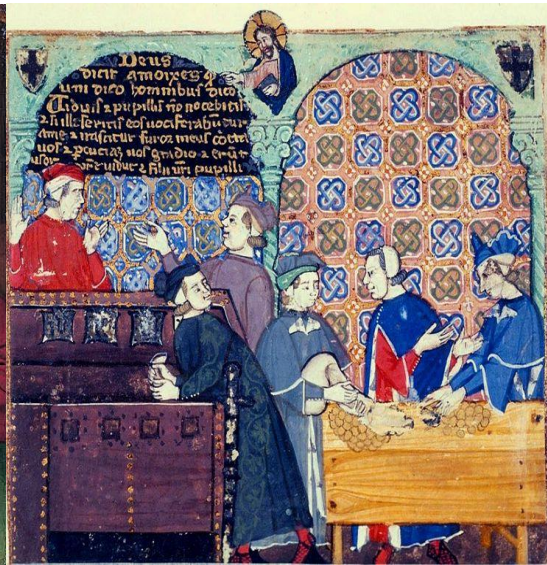 Deus
dicit amoixes q
uni dico hominibus dico
Uiduis ⁊ pupillis nō nocebitis
⁊ si illeseritis eos uociferabūtur
ame ⁊ irascetur furor meus cōtra
uos ⁊ percuciā uos gladio ⁊ erūt
uidue ⁊ filii uri pupilli